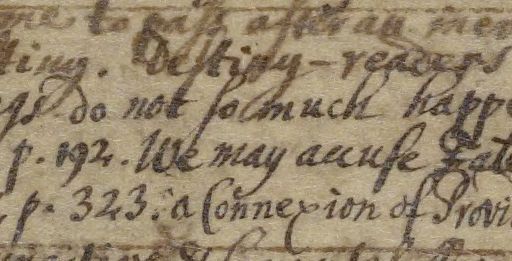 me to pass after an
ting. Destiny-readers
gs do not so much happe
p. 192. We may accuse Fate
, p. 323. a Connexion of Provi